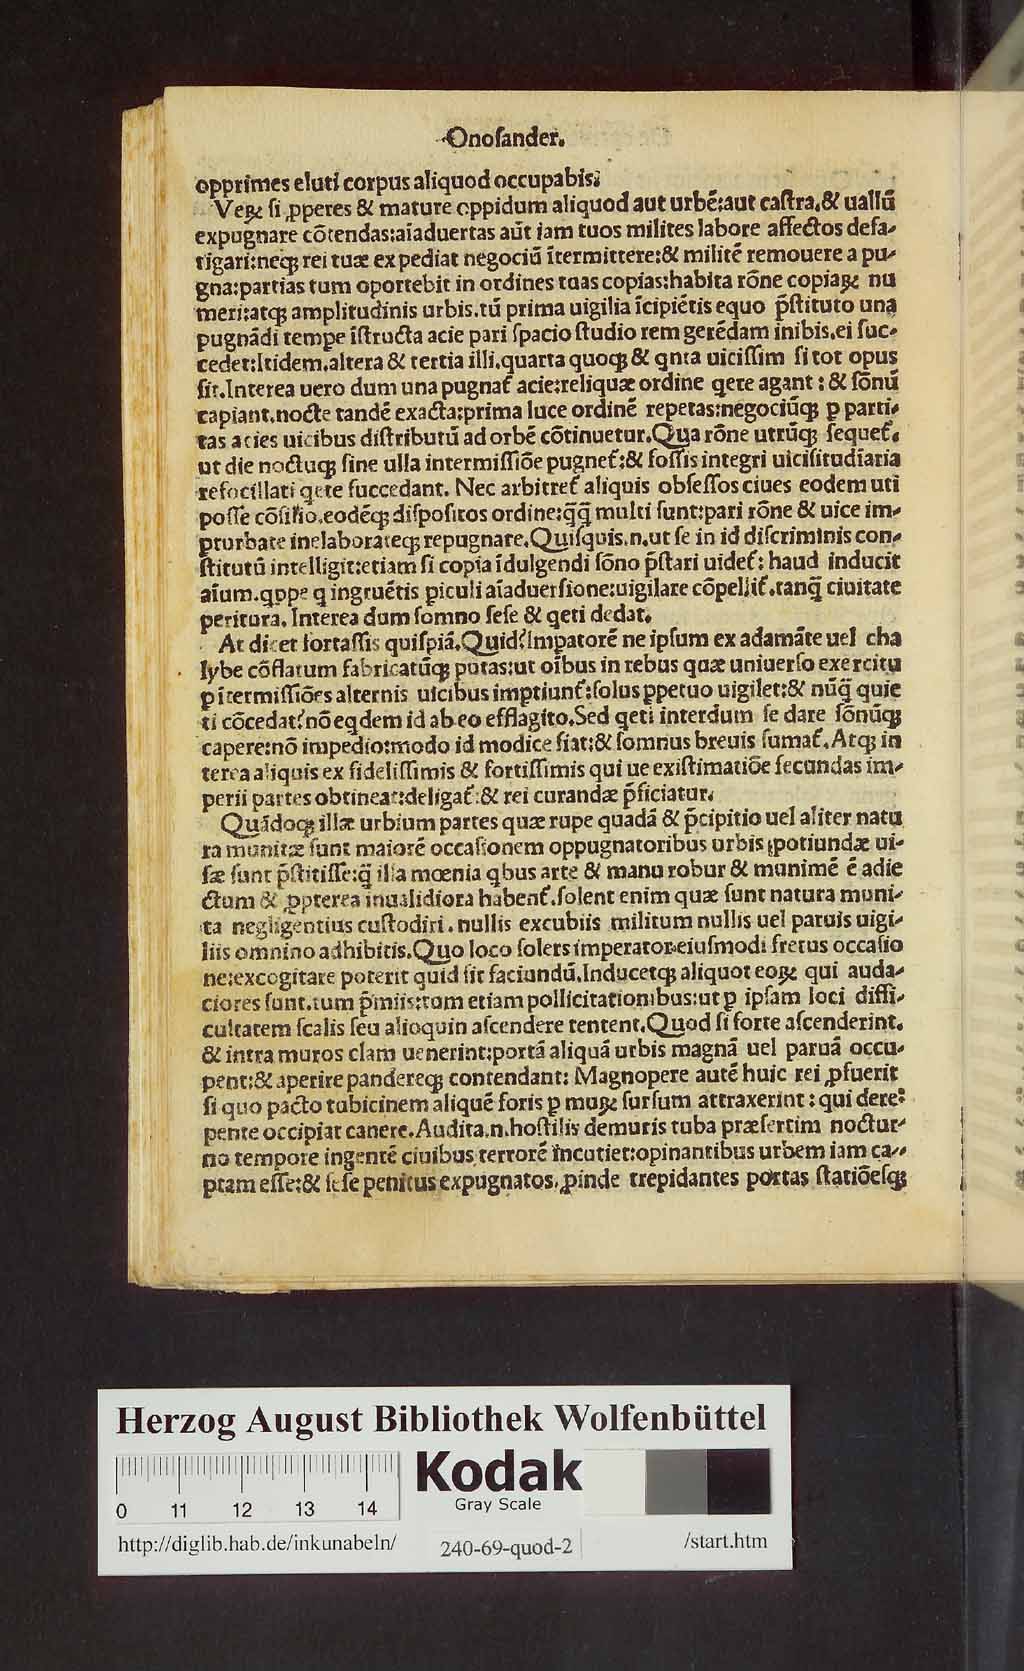 Onoſander.
opprimes eluti corpus aliquod occupabis.
Veꝝ ſi ꝓperes & mature oppidum aliquod aut urbē:aut caſtra.& uallū
expugnare cōtendas:aīaduertas aūt iam tuos milites labore affectos defa-
tigari:neqꝫ rei tuæ expediat negociū ītermittere:& militē remouere a pu-
gna:partias tum oportebit in ordines tuas copias:habita rōne copiaꝝ nu
meri:atqꝫ amplitudinis urbis.tū prima uigilia īcipiētis equo p̄ſtituto una
pugnādi tempe īſtructa acie pari ſpacio ſtudio rem gerēdam inibis.ei ſuc-
cedet:Itidem.altera & tertia illi.quarta quoqꝫ & qnta uiciſſim ſi tot opus
ſit.Interea uero dum una pugnat̄ acie:reliquæ ordine qete agant : & ſōnū
capiant.nocte tandē exacta:prima luce ordinē repetas:negociūqꝫ ꝑ parti-
tas acies uicibus diſtributū ad orbē cōtinuetur.Qua rōne utrūqꝫ ſequet̄.
ut die noctuqꝫ ſine ulla intermiſſiōe pugnet̄:& foſſis integri uiciſitudīaria
refocillati qete ſuccedant. Nec arbitret̄ aliquis obſeſſos ciues eodem uti
poſſe cōſilio.eodēqꝫ diſpoſitos ordine:q̄q̄ multi ſunt:pari rōne & uice im-
ꝑturbate inelaborateqꝫ repugnare.Quiſquis.n.ut ſe in id diſcriminis con-
ſtitutū intelligit:etiam ſi copia īdulgendi ſōno p̄ſtari uidet̄: haud inducit
aīum.qppe q ingruētis ꝑiculi aīaduerſione:uigilare cōpellit̄.tanq̄ ciuitate
peritura. Interea dum ſomno ſeſe & qeti dedat.
At dicet fortaſſis quiſpiā.Quid?Imꝑatorē ne ipſum ex adamāte uel cha
lybe cōflatum fabricatūqꝫ putas:ut oībus in rebus quæ uniuerſo exercitu
ꝑ ītermiſſiōes alternis uicibus imꝑtiunt̄:ſolus ꝑpetuo uigilet:& nūq̄ quie
ti cōcedat?nō eqdem id ab eo efflagito.Sed qeti interdum ſe dare ſōnūqꝫ
capere:nō impedio:modo id modice fiat:& ſomnus breuis ſumat̄.Atqꝫ in
terea aliquis ex fideliſſimis & fortiſſimis qui ue exiſtimatiōe ſecundas im-
perii partes obtineat:deligat̄:& rei curandæ p̄ficiatur.
Quādoqꝫ illæ urbium partes quæ rupe quadā & p̄cipitio uel aliter natu
ra munitæ ſunt maiorē occaſionem oppugnatoribus urbis potiundæ ui-
ſæ ſunt p̄ſtitiſſe:q̄ illa mœnia qbus arte & manu robur & munimē ē adie
ctum & ꝓpterea inualidiora habent̄.ſolent enim quæ ſunt natura muni-
ta negligentius cuſtodiri.nullis excubiis militum nullis uel paruis uigi-
liis omnino adhibitis.Quo loco ſolers imperator.eiuſmodi fretus occaſio
ne:excogitare poterit quid ſit faciundū.Inducetqꝫ aliquot eoꝝ qui auda-
ciores ſunt.tum p̄miis:tum etiam pollicitationibus:ut ꝑ ipſam loci diffi-
cultatem ſcalis ſeu alioquin aſcendere tentent.Quod ſi forte aſcenderint.
& intra muros clam uenerint:portā aliquā urbis magnā uel paruā occu-
pent:& aperire pandereqꝫ contendant: Magnopere autē huic rei ꝓfuerit
ſi quo pacto tubicinem aliquē foris ꝑ muꝝ ſurſum attraxerint : qui dere-
pente occipiat canere.Audita.n.hoſtilis demuris tuba præſertim noctur-
no tempore ingentē ciuibus terrorē incutiet:opinantibus urbem iam ca-
ptam eſſe:& ſeſe penitus expugnatos.ꝓinde trepidantes portas ſtatiōeſqꝫ
Herzog August Bibliothek Wolfenbüttel
Kodak
Gray Scale
0 11 12 13 14
http://diglib.hab.de/inkunabeln/ 240-69-quod-2 /start.htm